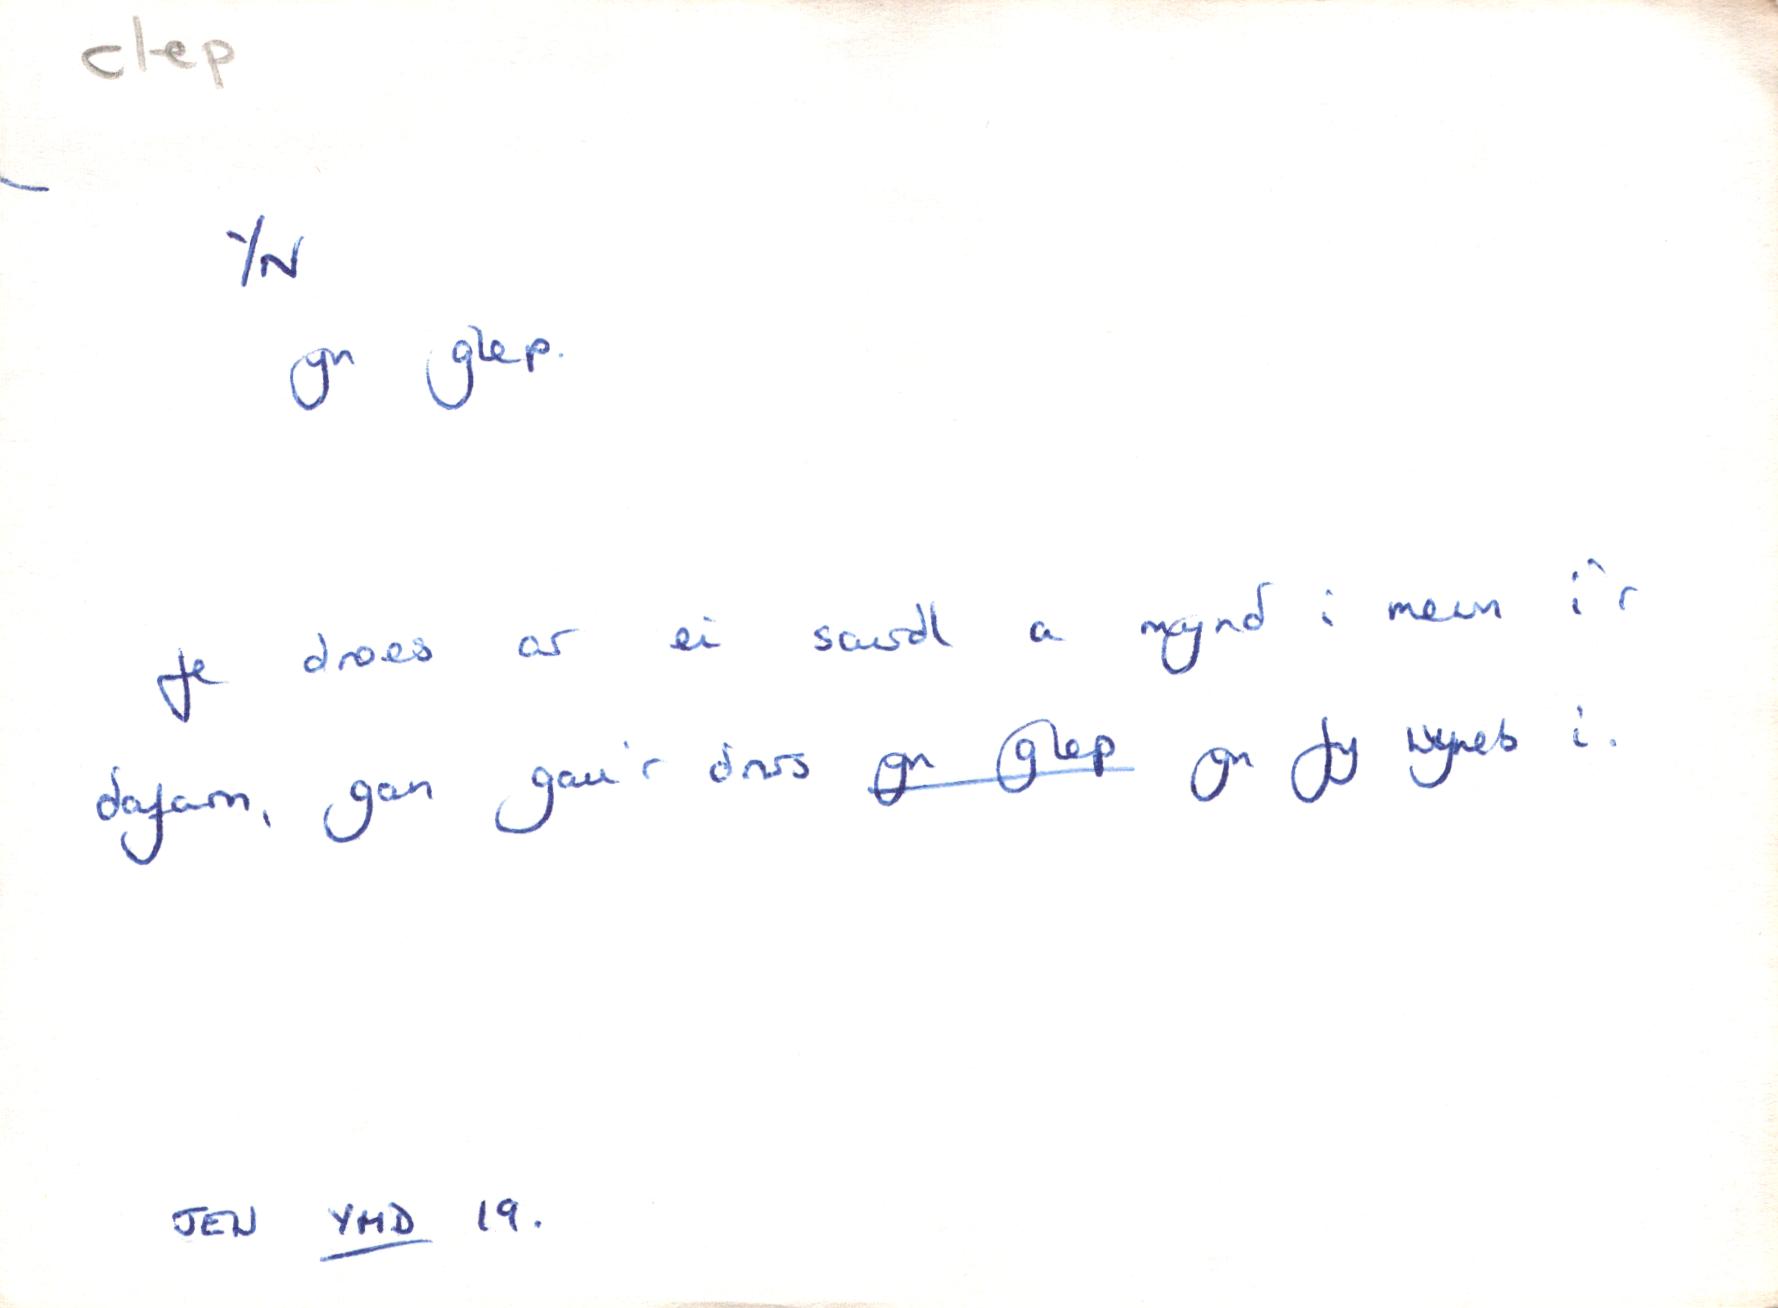 clep
YN
yn glep.
fe droes ar ei sawdl a mynd i mewn i'r
dafarn, gan gau'r drws yn glep yn fy wyneb i.
JEN YMD 19.